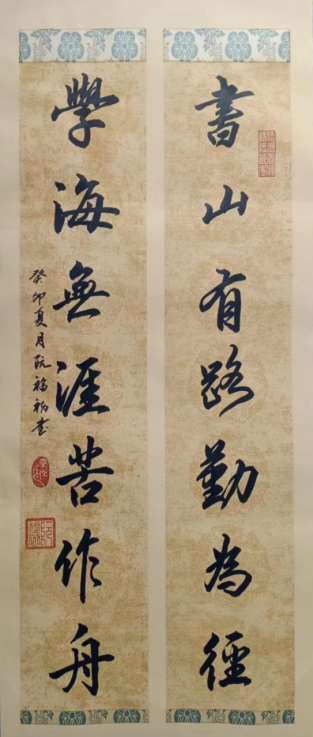 書山有路勤為徑
學海無涯苦作舟
癸卯夏月阮福初書